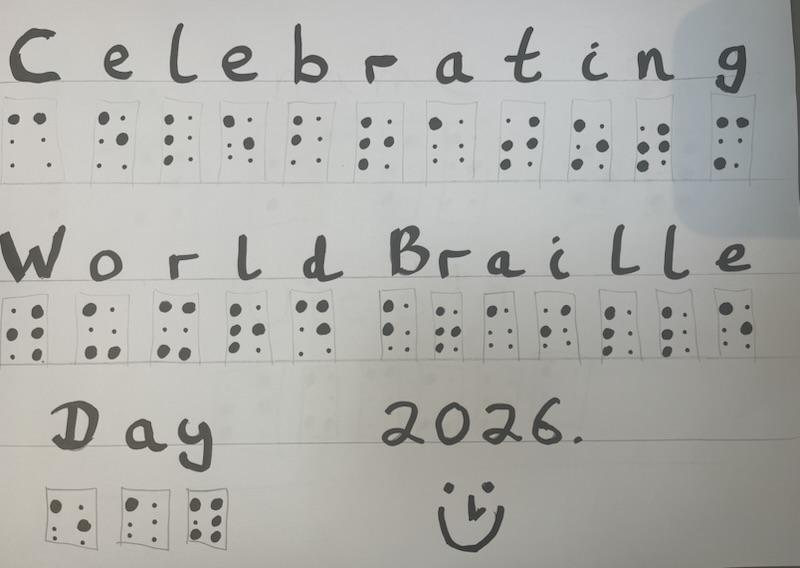 Celebrating
World Braille
Day 2026.